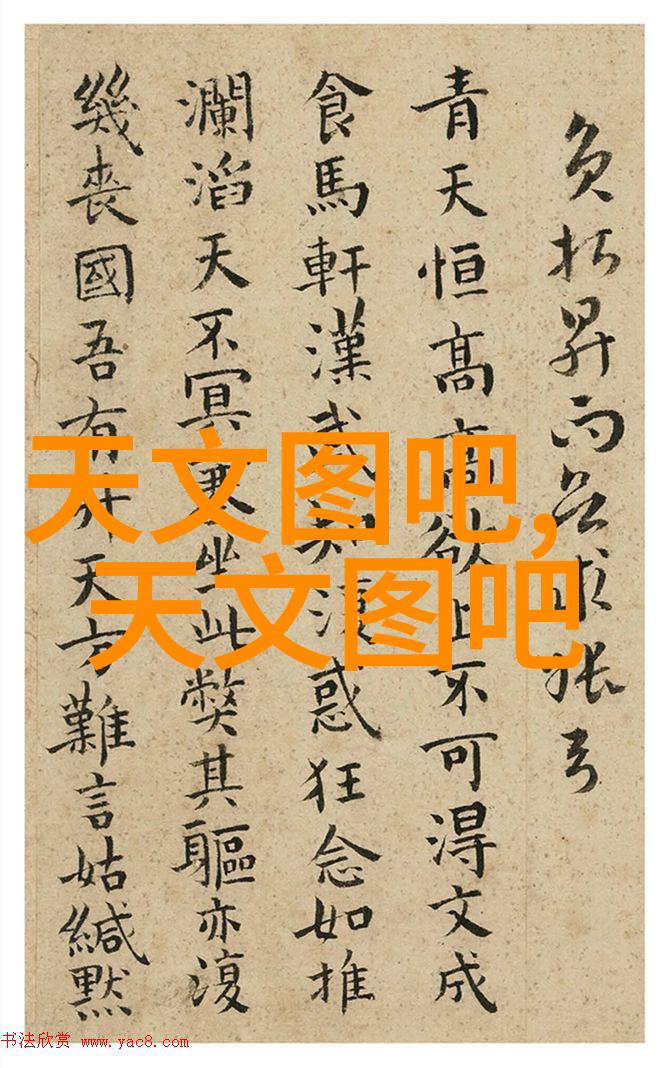 昇而求
青天恒高高欲上不可得文成
食馬軒漢武復惑狂念如推
瀾滔天不冥坐此獘其軀亦復
幾喪國吾有升天方難言姑緘默
天文图吧,
天文图吧
书法欣赏 www.yac8.com